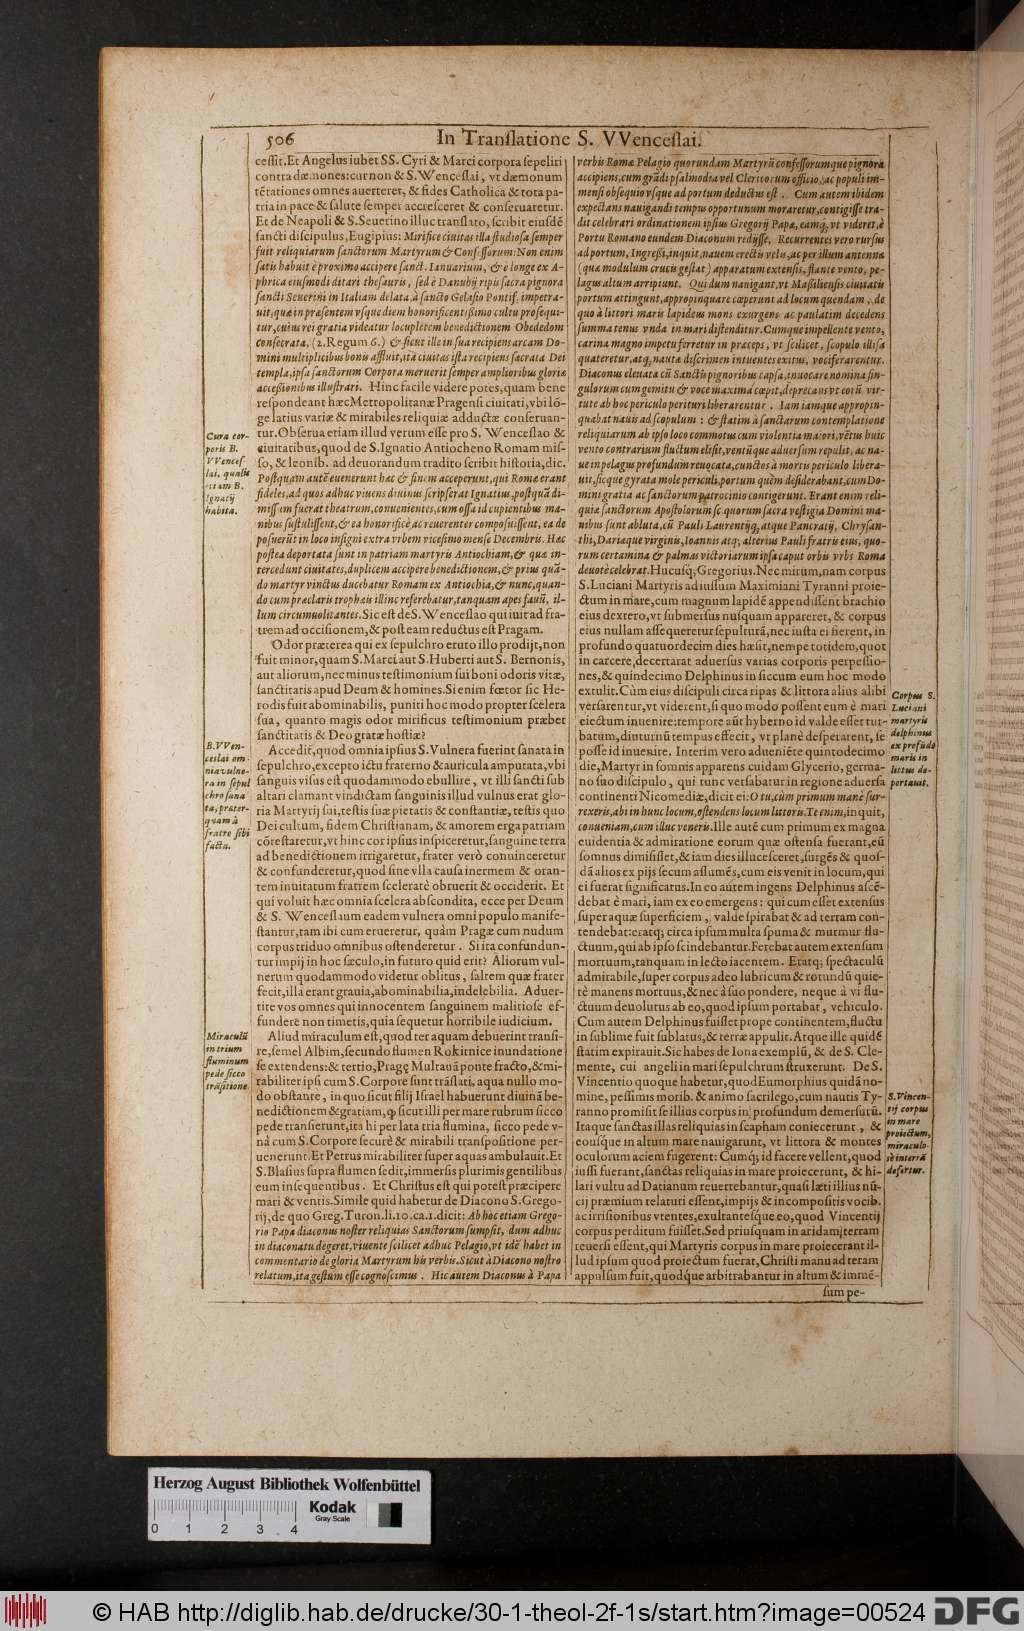 506
In Translatione S. VVenceslai.
cessit. Et Angelus iubet SS. Cyri & Marci corpora sepeliri
contra dæmones: cur non & S. Wenceslai, vt dæmonum
tētationes omnes auerteret, & fides Catholica & tota pa-
tria in pace & salute semper accresceret & conseruaretur.
Et de Neapoli & S. Seuerino illuc translato, scribit eiusdē
sancti discipulus, Eugipius: Mirifice ciuitas illa studiosa semper
fuit reliquiarum sanctorum Martyrum & Confessorum: Non enim
satis habuit è proximo accipere sanct. Ianuarium, & è longe ex A-
phrica eiusmodi ditari thesauris, sed è Danubij ripis sacra pignora
sancti Seuerini in Italiam delata, à sancto Gelasio Pontif. impetra-
uit, quæ in præsentem vsque diem honorificentißimo cultu prosequi-
tur, cuius rei gratia videatur locupletem benedictionem Obededom
consecrata, (2. Regum 6.) & sicut ille in sua recipiens arcam Do-
mini multiplicibus bonis affluit, ita ciuitas ista recipiens sacrata Dei
templa, ipsa sanctorum Corpora meruerit semper amplioribus gloriæ
accessionibus illustrari. Hinc facile videre potes, quam bene
respondeant hæc Metropolitanæ Pragensi ciuitati, vbi lō-
ge latius variæ & mirabiles reliquiæ adductæ conseruan-
tur. Obserua etiam illud verum esse pro S. Wenceslao &
ciuitatibus, quod de S. Ignatio Antiocheno Romam mis-
so, & leonib. ad deuorandum tradito scribit historia, dic.
Postquam autē euenerunt hæc & finem acceperunt, qui Romæ erant
fideles, ad quos adhuc viuens diuinus scripserat Ignatius, postquā di-
missum fuerat theatrum, conuenientes, cum ossa id cupientibus ma-
nibus sustulissent, & ea honorificè ac reuerenter composuissent, ea de
posuerūt in loco insigni extra vrbem vicesimo mense Decembris. Hæc
postea deportata sunt in patriam martyris Antiochiam, & quæ in-
tercedunt ciuitates, duplicem accipere benedictionem, & prius quā-
do martyr vinctus ducebatur Romam ex Antiochia, & nunc, quan-
do cum præclaris trophæis illinc referebatur, tanquam apes fauū, il-
lum circumuolitantes. Sic est de S. Wenceslao qui iuit ad fra-
trem ad occisionem, & post eam reductus est Pragam.
Odor præterea qui ex sepulchro eruto illo prodijt, non
fuit minor, quam S. Marci aut S. Huberti aut S. Bernonis,
aut aliorum, nec minus testimonium sui boni odoris vitæ,
sanctitatis apud Deum & homines. Si enim fœtor sic He-
rodis fuit abominabilis, puniti hoc modo propter scelera
sua, quanto magis odor mirificus testimonium præbet
sanctitatis & Deo gratæ hostiæ?
Accedit, quod omnia ipsius S. Vulnera fuerint sanata in
sepulchro, excepto ictu fraterno & auricula amputata, vbi
sanguis visus est quodammodo ebullire, vt illi sancti sub
altari clamant vindictam sanguinis illud vulnus erat glo-
ria Martyrij sui, testis suæ pietatis & constantiæ, testis quo
Dei cultum, fidem Christianam, & amorem erga patriam
cōtestaretur, vt hinc cor ipsius inspiceretur, sanguine terra
ad benedictionem irrigaretur, frater verò conuinceretur
& confunderetur, quod sine vlla causa inermem & oran-
tem inuitatum fratrem sceleratè obruerit & occiderit. Et
qui voluit hæc omnia scelera abscondita, ecce per Deum
& S. Wenceslaum eadem vulnera omni populo manife-
stantur, tam ibi cum erueretur, quàm Pragæ cum nudum
corpus triduo omnibus ostenderetur. Si ita confundun-
tur impij in hoc sæculo, in futuro quid erit? Aliorum vul-
nerum quodammodo videtur oblitus, saltem quæ frater
fecit, illa erant grauia, abominabilia, indelebilia. Aduer-
tite vos omnes qui innocentem sanguinem malitiose ef-
fundere non timetis, quia sequetur horribile iudicium.
Aliud miraculum est, quod ter aquam debuerint transi-
re, semel Albim, secundo flumen Rokitnice inundatione
se extendens: & tertio, Pragę Multauā ponte fracto, & mi-
rabiliter ipsi cum S. Corpore sunt trāslati, aqua nullo mo-
do obstante, in quo sicut filij Israel habuerunt diuinā be-
nedictionem & gratiam, ꝙ sicut illi per mare rubrum sicco
pede transierunt, ita hi per lata tria flumina, sicco pede v-
nà cum S. Corpore securè & mirabili transpositione per-
uenerunt. Et Petrus mirabiliter super aquas ambulauit. Et
S. Blasius supra flumen sedit, immersis plurimis gentilibus
eum insequentibus. Et Christus est qui potest præcipere
mari & ventis. Simile quid habetur de Diacono S. Grego-
rij, de quo Greg. Turon. li. 10. ca. 1. dicit: Ab hoc etiam Grego-
rio Papa diaconus noster reliquias Sanctorum sumpsit, dum adhuc
in diaconatu degeret, viuente scilicet adhuc Pelagio, vt idē habet in
commentario de gloria Martyrum his verbis. Sicut à Diacono nostro
relatum, ita gestum esse cognoscimus. Hic autem Diaconus à Papa
Cura cor-
poris B.
VVences
lai, qualis
etiam B.
Ignatij
habita.
B. VVen-
ceslai om-
nia vulne-
ra in sepul
chro sana
ta, præter-
quam à
fratre sibi
facta.
Miraculū
in trium
fluminum
pede sicco
trāsitione.
verbis Romæ Pelagio quorundam Martyrū confessorumque pignora
accipiens, cum grādi psalmodia vel Clericorum officio, ac populi im-
mensi obsequio vsque ad portum deductus est. Cum autem ibidem
expectans nauigandi tempus opportunum moraretur, contigisse tra-
dit celebrari ordinationem ipsius Gregorij Papæ, eamq́, vt videret, è
Portu Romano eundem Diaconum redijsse. Recurrentes vero rursus
ad portum, Ingreßi, inquit, nauem erectis velis, ac per illum antenna
(quæ modulum crucis gestat) apparatum extensis, flante vento, pe-
lagus altum arripiunt. Qui dum nauigant, vt Maßiliensis ciuitatis
portum attingunt, appropinquare cœperunt ad locum quendam, de
quo à littori maris lapideus mons exurgens ac paulatim decedens
summa tenus vnda in mari distenditur. Cumque impellente vento,
carina magno impetu ferretur in præceps, vt scilicet, scopulo illisa
quateretur, atq, nautæ discrimen intuentes exitus, vociferarentur.
Diaconus eleuata cū Sanctis pignoribus capsa, inuocare nomina sin-
gulorum cum gemitu & voce maxima cœpit, deprecans vt eorū vir-
tute ab hoc periculo perituri liberarentur. Iam iamque appropin-
quabat nauis ad scopulum: & statim à sanctarum contemplatione
reliquiarum ab ipso loco commotus cum violentia maiori, vētus huic
vento contrarium fluctum elisit, ventūque aduersum repulit, ac na-
ue in pelagus profundum reuocata, cunctos à mortis periculo libera-
uit, sicque gyrata mole periculi, portum quēm desiderabant, cum Do-
mini gratia ac sanctorum patrocinio contigerunt. Erant enim reli-
quiæ sanctorum Apostolorum sc quorum sacra vestigia Domini ma-
nibus sunt abluta, cū Pauli Laurentijq, atque Pancratij, Chrysan-
thi, Dariæque virginis, Ioannis atq; alterius Pauli fratris eius, quo-
rum certamina & palmas victoriarum ipsa caput orbis vrbs Roma
deuotè celebrat. Hucusq́; Gregorius. Nec mirum, nam corpus
S. Luciani Martyris ad iussum Maximiani Tyranni proie-
ctum in mare, cum magnum lapidē appendissent brachio
eius dextero, vt submersus nusquam appareret, & corpus
eius nullam assequeretur sepulturā, nec iusta ei fierent, in
profundo quatuordecim dies hæsit, nempe totidem, quot
in carcere, decertarat aduersus varias corporis perpessio-
nes, & quindecimo Delphinus in siccum eum hoc modo
extulit. Cùm eius discipuli circa ripas & littora alius alibi
versarentur, vt viderent, si quo modo possent eum è mari
eiectum inuenire: tempore aūt hyberno id valde esset tur-
batum, diuturnū tempus effecit, vt planè desperarent, se
posse id inuenire. Interim vero adueniēte quintodecimo
die, Martyr in somnis apparens cuidam Glycerio, germa-
no suo discipulo, qui tunc versabatur in regione aduersa
continenti Nicomediæ, dicit ei: O tu, cùm primum manè sur-
rexeris, abi in hunc locum, ostendens locum littoris. Te enim, inquit,
conueniam, cum illuc veneris. Ille autē cum primum ex magna
euidentia & admiratione eorum quæ ostensa fuerant, eū
somnus dimisisset, & iam dies illucesceret, surgēs & quos-
dā alios ex pijs secum assumēs, cum eis venit in locum, qui
ei fuerat significatus. In eo autem ingens Delphinus ascē-
debat è mari, iam ex eo emergens: qui cum esset extensus
super aquæ superficiem, valde spirabat & ad terram con-
tendebat: eratq́; circa ipsum multa spuma & murmur flu-
ctuum, qui ab ipso scindebantur. Ferebat autem extensum
mortuum, tanquam in lecto iacentem. Eratq́; spectaculū
admirabile, super corpus adeo lubricum & rotundū quie-
tè manens mortuus, & nec à suo pondere, neque à vi flu-
ctuum deuolutus ab eo, quod ipsum portabat, vehiculo.
Cum autem Delphinus fuisset prope continentem, fluctu
in sublime fuit sublatus, & terræ appulit. Atque ille quidē
statim expirauit. Sic habes de Iona exemplū, & de S. Cle-
mente, cui angeli in mari sepulchrum struxerunt. De S.
Vincentio quoque habetur, quod Eumorphius quidā no-
mine, pessimis morib. & animo sacrilego, cum nautis Ty-
ranno promisit se illius corpus in profundum demersurū.
Itaque sanctas illas reliquias in scapham coniecerunt, &
eousque in altum mare nauigarunt, vt littora & montes
oculorum aciem fugerent: Cumq́; id facere vellent, quod
iussi fuerant, sanctas reliquias in mare proiecerunt, & hi-
lari vultu ad Datianum reuertebantur, quasi læti illius nū-
cij præmium relaturi essent, impijs & incompositis vocib.
ac irrisionibus vtentes, exultantesque eo, quod Vincentij
corpus perditum fuisset. Sed priusquam in aridam, terram
reuersi essent, qui Martyris corpus in mare proiecerant il-
lud ipsum quod proiectum fuerat, Christi manu ad terram
appulsum fuit, quodque arbitrabantur in altum & immē-
sum pe-
Corpus S.
Luciani
martyris
delphinus
ex profūdo
maris in
littus de-
portauit.
S. Vincen-
tij corpus
in mare
proiectum,
miraculo-
sè in terrā
defertur.
Herzog August Bibliothek Wolfenbüttel
0 1 2 3 4
Kodak
Gray Scale
© HAB http://diglib.hab.de/drucke/30-1-theol-2f-1s/start.htm?image=00524
DFG